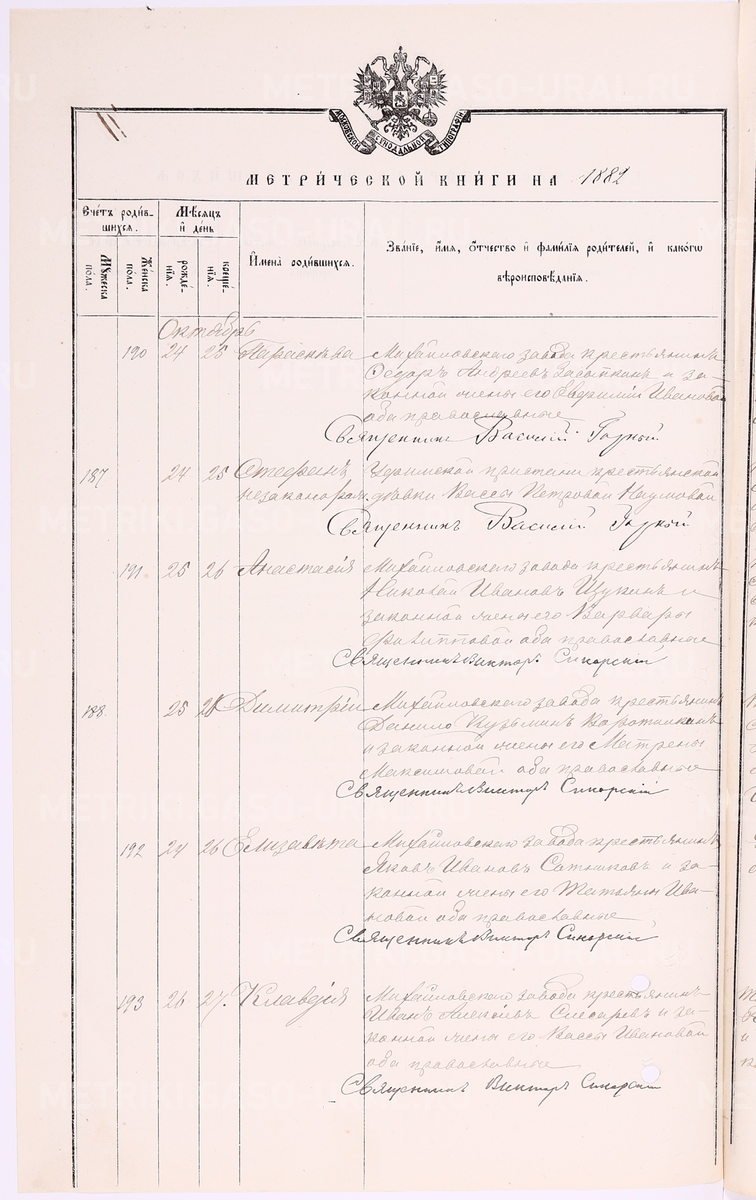 МОСКОВСКОЙ СѴНОДАЛЬНОЙ ТИПОГРАФІИ
МЕТРИ́ЧЕСКОЙ КНИ́ГИ НА 1882
Сче́тъ роди́в-
шихся.
Мѣ́сяцъ
и҆ де́нь
Мꙋ́жеска
пола.
Же́нска
пола.
рожде́-
нїѧ.
креще́-
нїѧ.
И҆мена̀ роди́вшихся.
Зва́нїе, и҆́мѧ, ѻ҆́тчество и҆ фами́лїѧ роди́телей, и҆ како́гѡ
вѣроисповѣ́данїѧ.
Октября
190 24 25 Параскева Михайловскаго завода крестьянинъ
Ѳедоръ Андреевъ Засыпкинъ и за-
конной жены его Евфиміи Ивановой
оба православные
Священникъ Василій Горный
187 24 25 Стефанъ Уфимской пристани крестьянской
незаконорож. дѣвки Вассы Петровой Наумовой
Священникъ Василій Горный
191 25 26 Анастасія Михайловскаго завода крестьянинъ
Николай Ивановъ Щукинъ и
законной жены его Варвары
Филипповой оба православные
Священникъ Викторъ Сикорскій
188. 25 28 Димитрій Михайловскаго завода крестьянинъ
Данило Кузьминъ Коротилкинъ
и законной жены его Матрены
Максимовой оба православные
Священникъ Викторъ Сикорскій
192 24 26 Елизавета Михайловскаго завода крестьянинъ
Яковъ Ивановъ Сотниковъ и за-
конной жены его Татьяны Ива-
новой оба православные
Священникъ Викторъ Сикорскій
193 26 27. Клавдія Михайловскаго завода крестьянинъ
Иванъ Алексѣевъ Слесаревъ и за-
конной жены его Вассы Ивановой
оба православные
Священникъ Викторъ Сикорскій